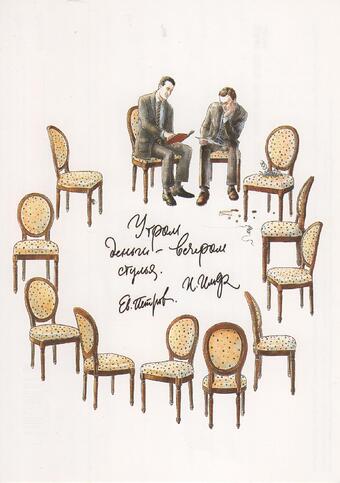 Утром
деньги - вечером
стулья.
Ев. Петров. И. Ильф